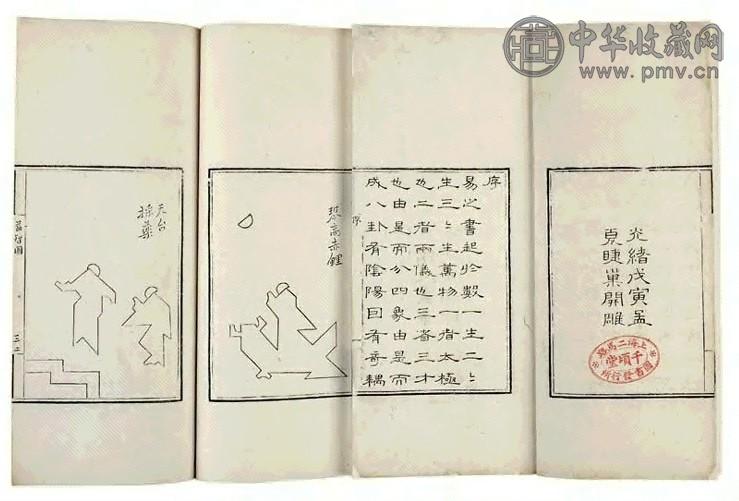 中华收藏网
www.pmv.cn
光緒戊寅孟
夏睫巢開雕
上海二馬路
千頃堂
圖書發行所
序
易之書起於數一生二〻
生三〻生萬物一者太極
也二者兩儀也三者三才
也由是而分四象由是而
成八卦有陰陽囙有奇耦
序
琴高赤鯉
天台
採藥
益智圖